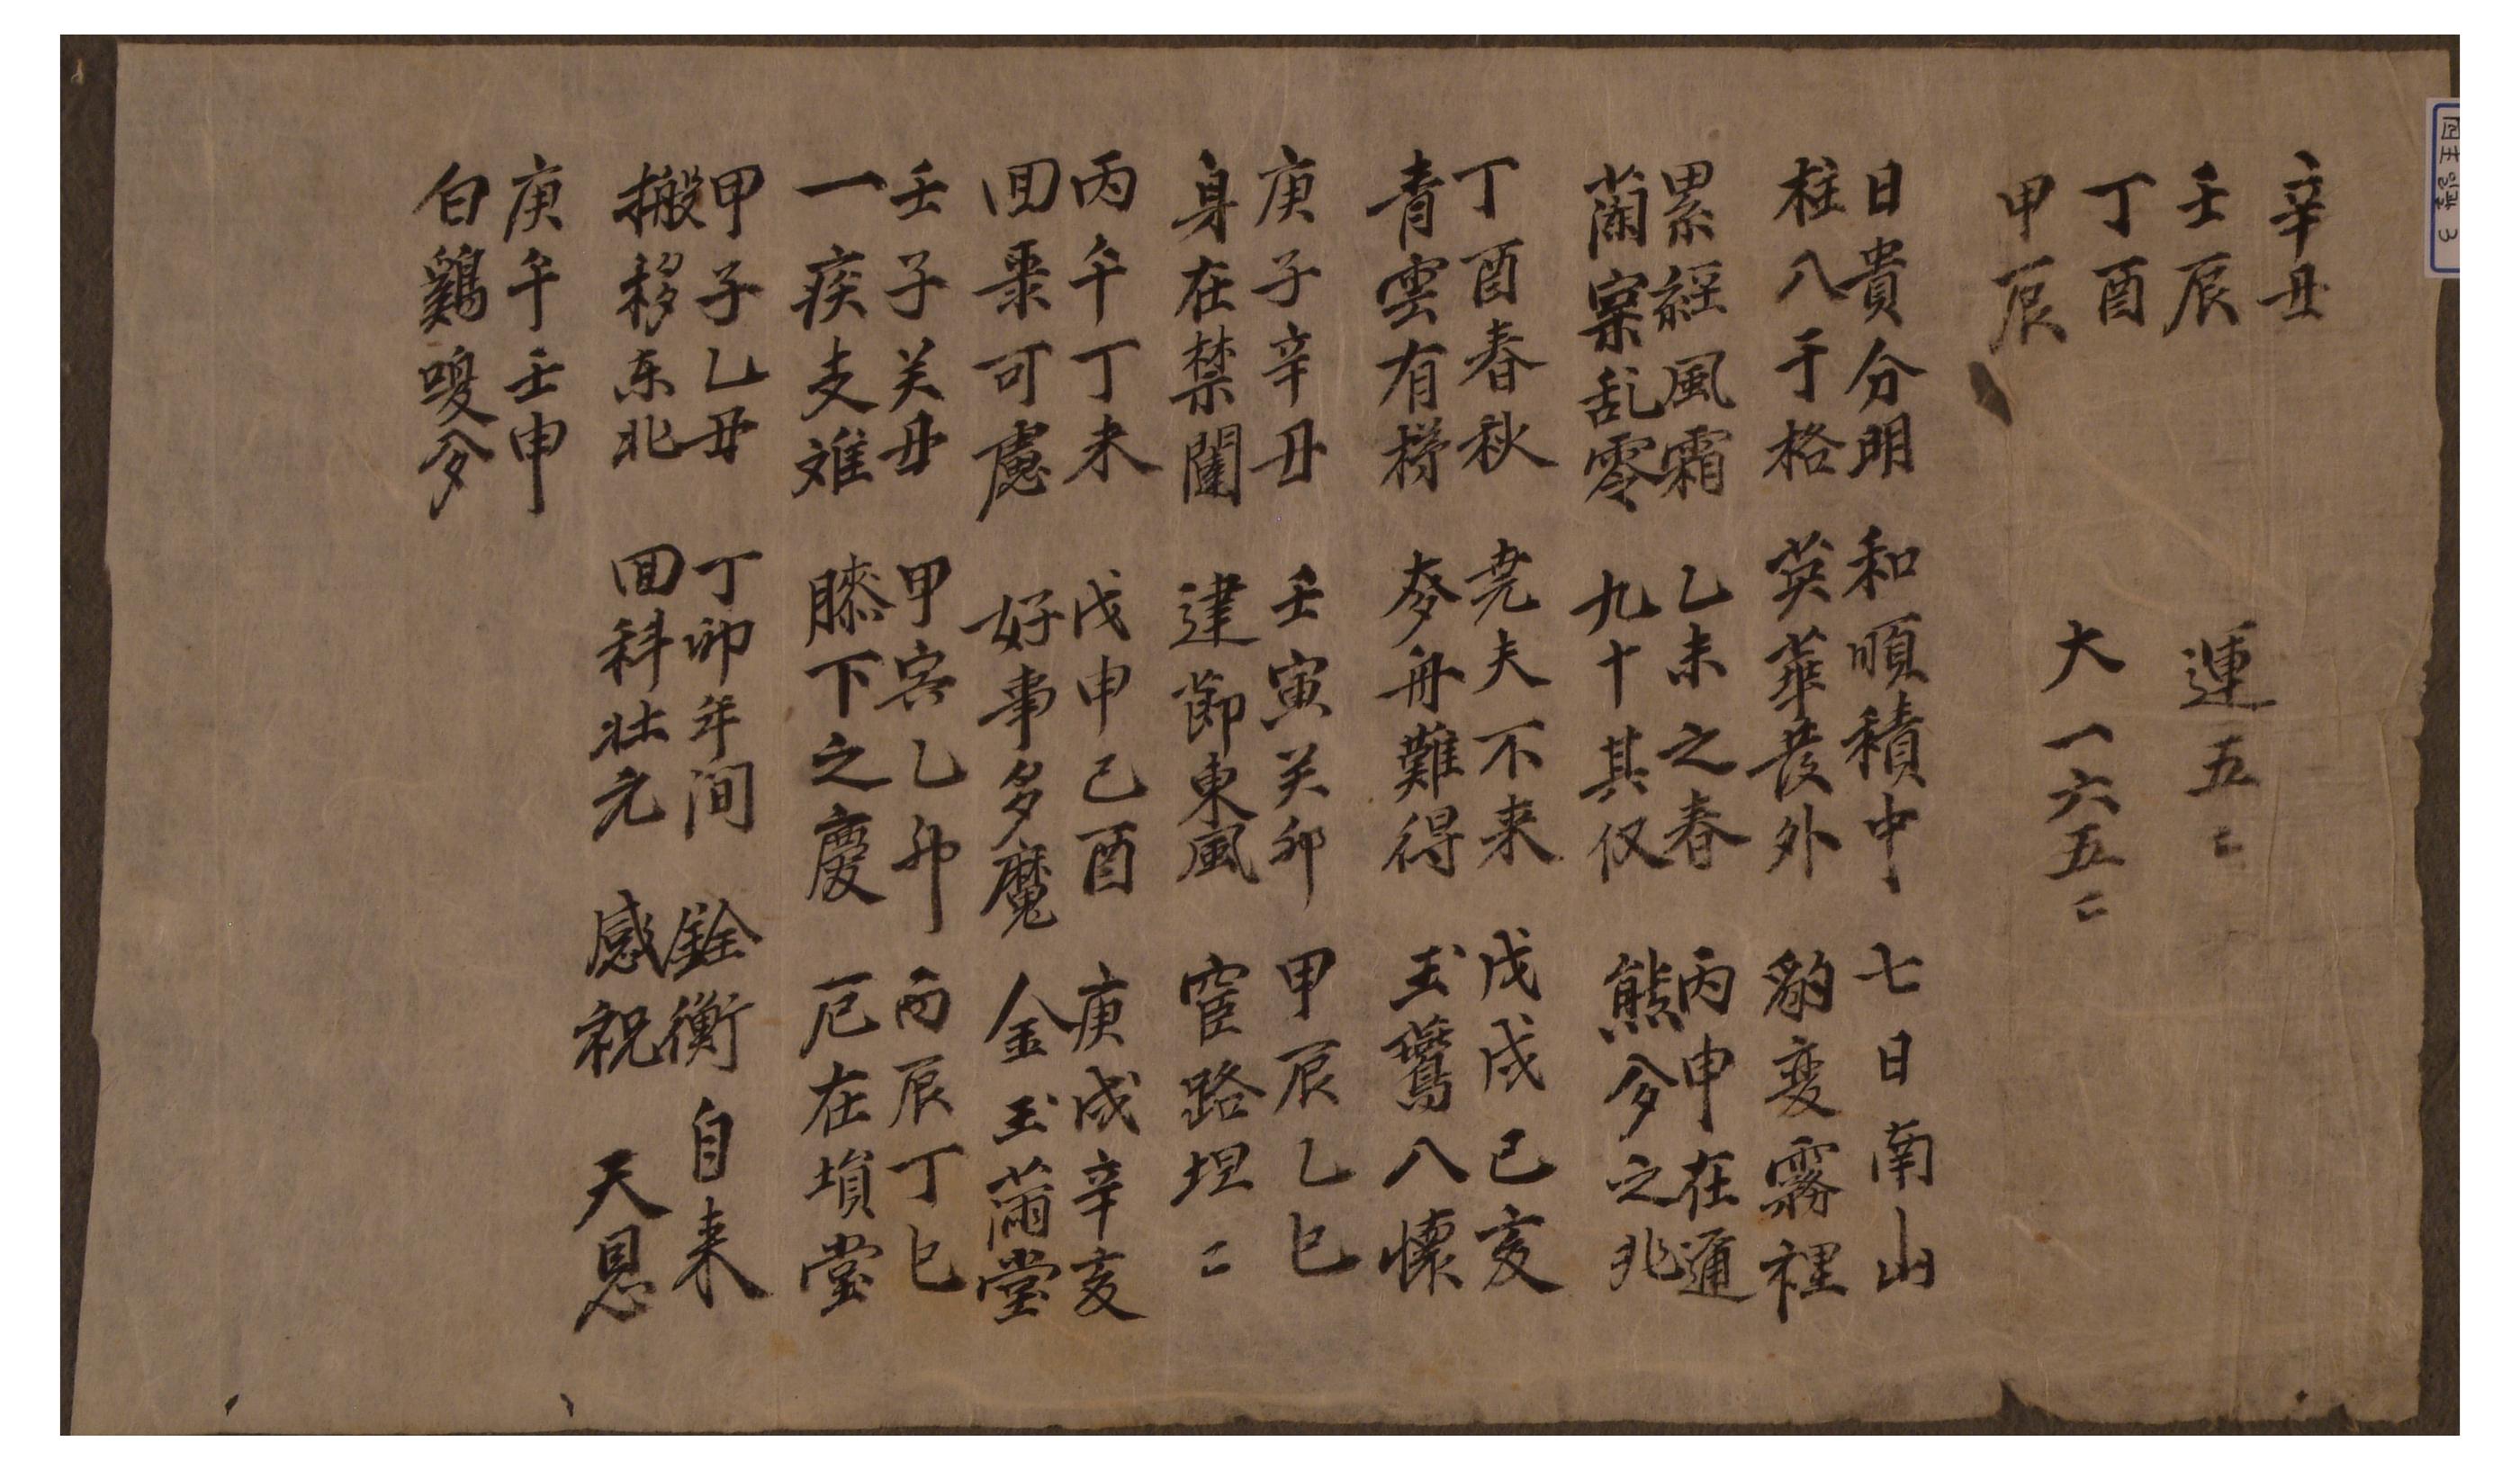 四主 일괄 3
辛丑
壬辰 運五〻
丁酉
甲辰 大一六五〻
日貴分明 和順積中 七日南山
柱八于格 英華發外 豹変霧裡
累經風霜 乙未之春 丙申在邇
蘭室乱零 九十其仪 熊夢之兆
丁酉春秋 尭夫不来 戊戌己亥
青雲有梯 麥舟難得 玉鷺八懷
庚子辛丑 壬寅癸卯 甲辰乙巳
身在禁闥 建節東風 宦路坦〻
丙午丁未 戊申己酉 庚戌辛亥
回祿可慮 好事多魔 金玉滿堂
壬子癸丑 甲寅乙卯 丙辰丁巳
一疾支难 膝下之慶 厄在塤堂
甲子乙丑 丁卯年间 銓衡自来
搬移东北 回科壮元 感祝 天恩
庚午壬申
白鷄叟夢